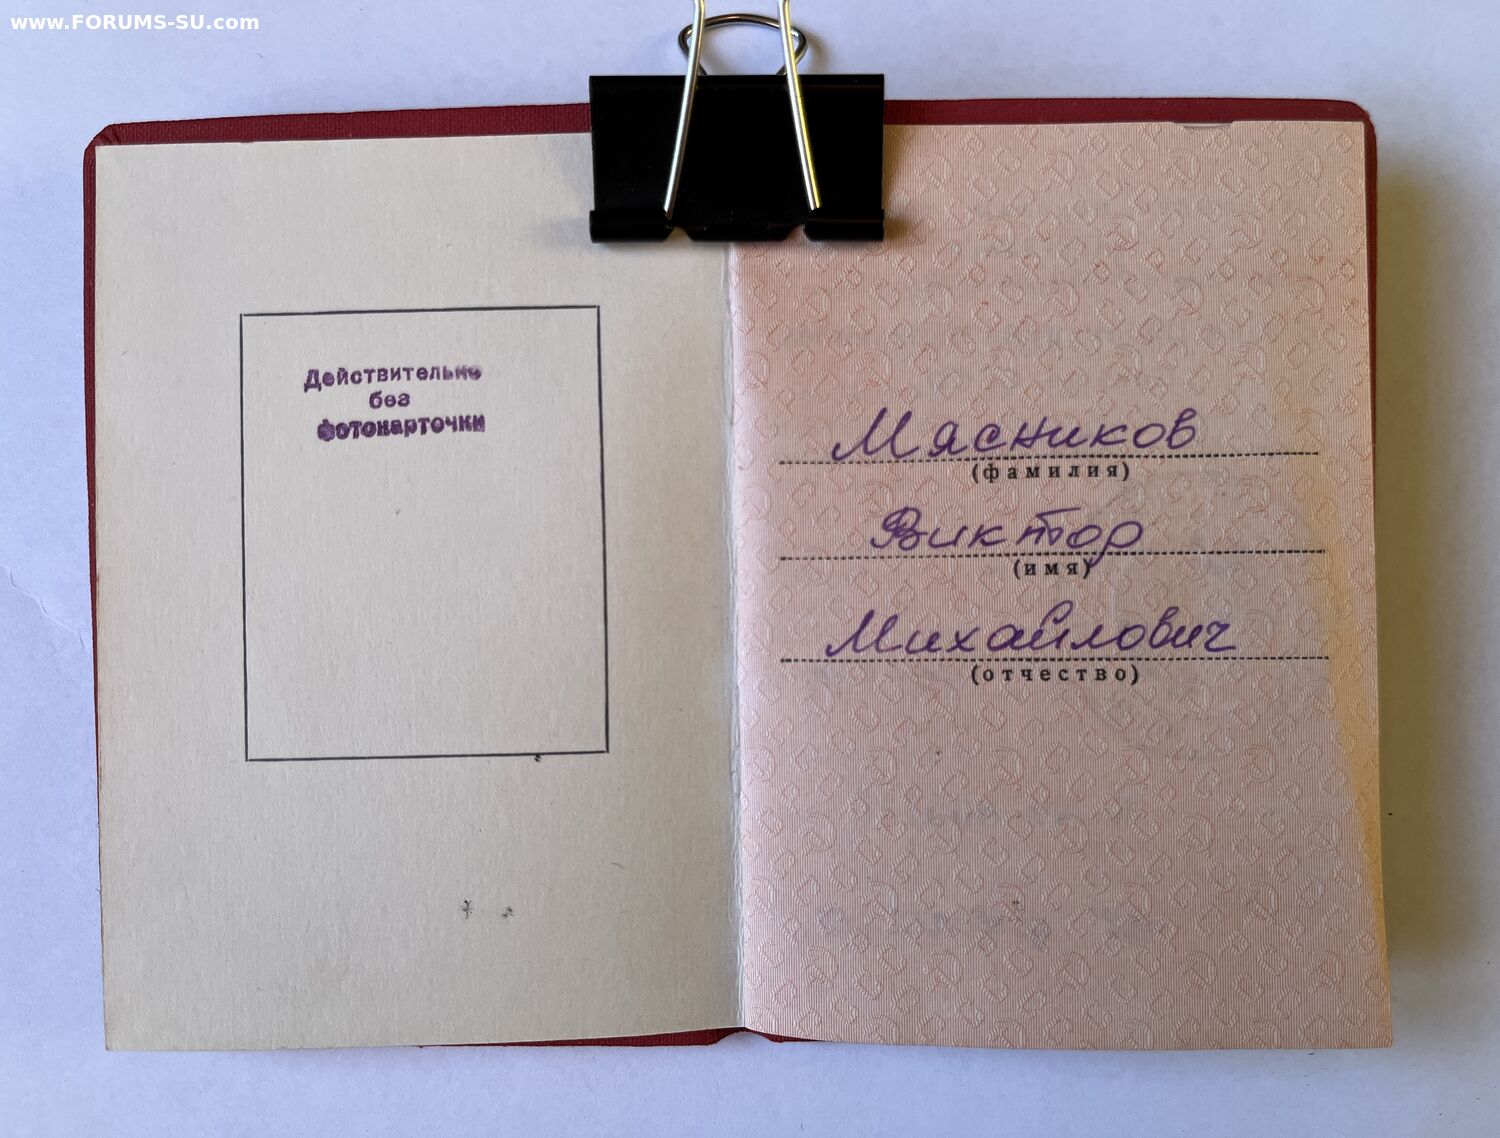 www.FORUMS-SU.com
Действительно
без
фотокарточки
Мясников
(фамилия)
Виктор
(имя)
Михайлович
(отчество)